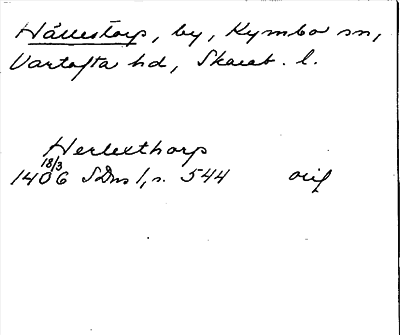 Hällestorp, by, Kymbo sn,
Vartofta hd, Skarab. l.
Herlexthorp
18/3
1406 SDns 1, s. 544 orig